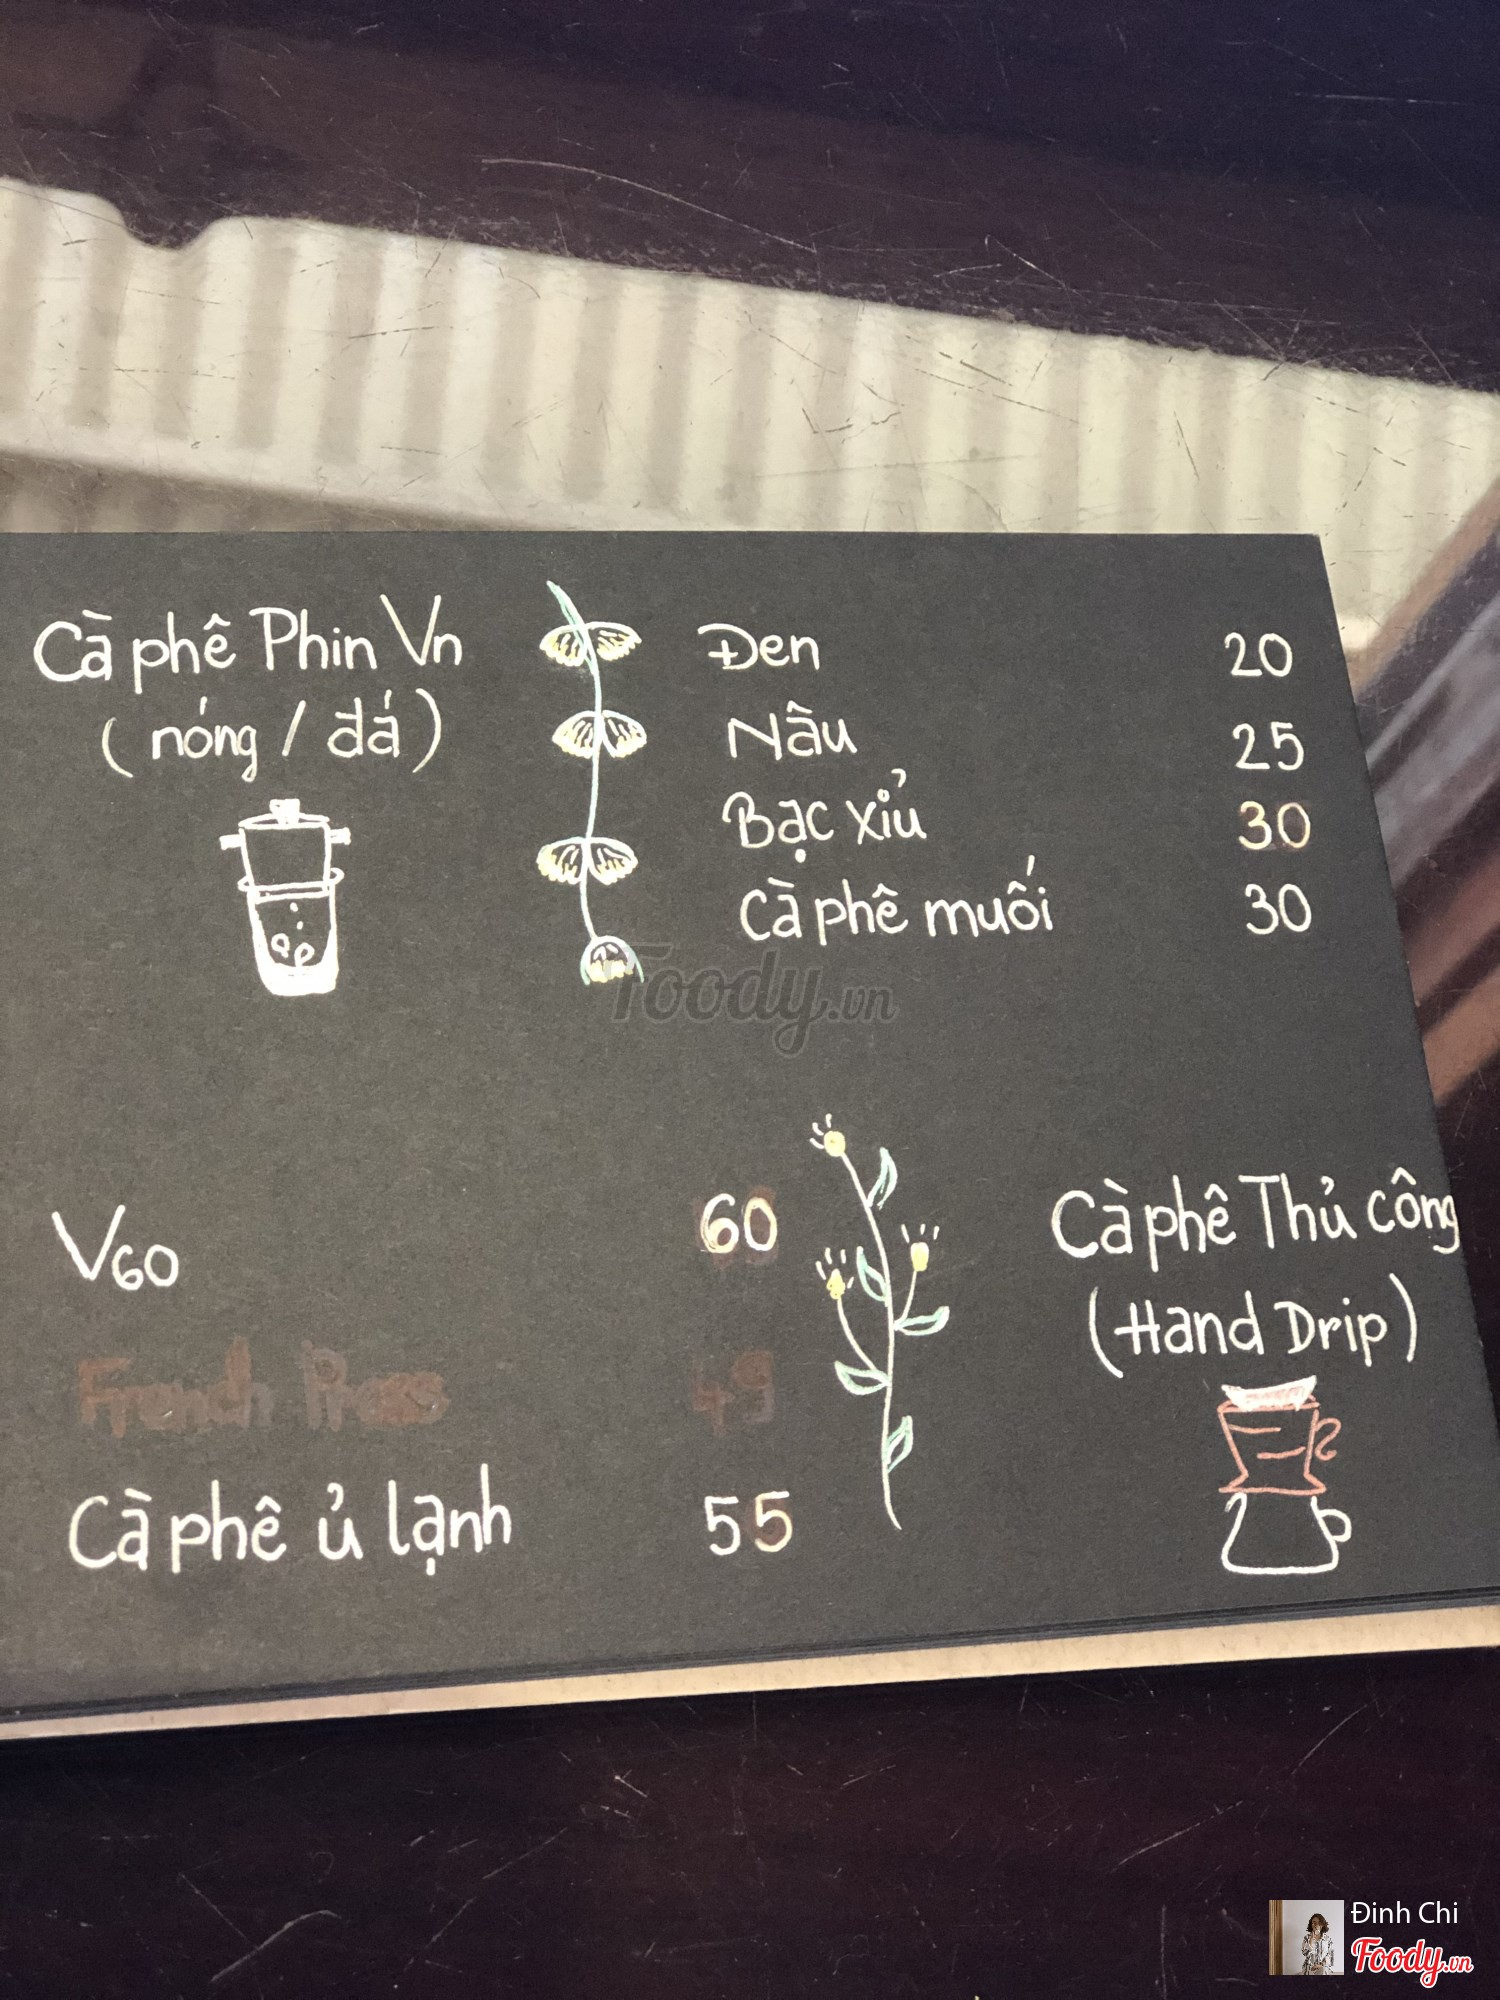 Cà phê Phin Vn
(nóng / đá)
Đen 20
Nâu 25
Bạc xỉu 30
Cà phê muối 30
Foody.vn
V60 60
French Press 45
Cà phê ủ lạnh 55
Cà phê Thủ công
(Hand Drip)
Đinh Chi
Foody.vn